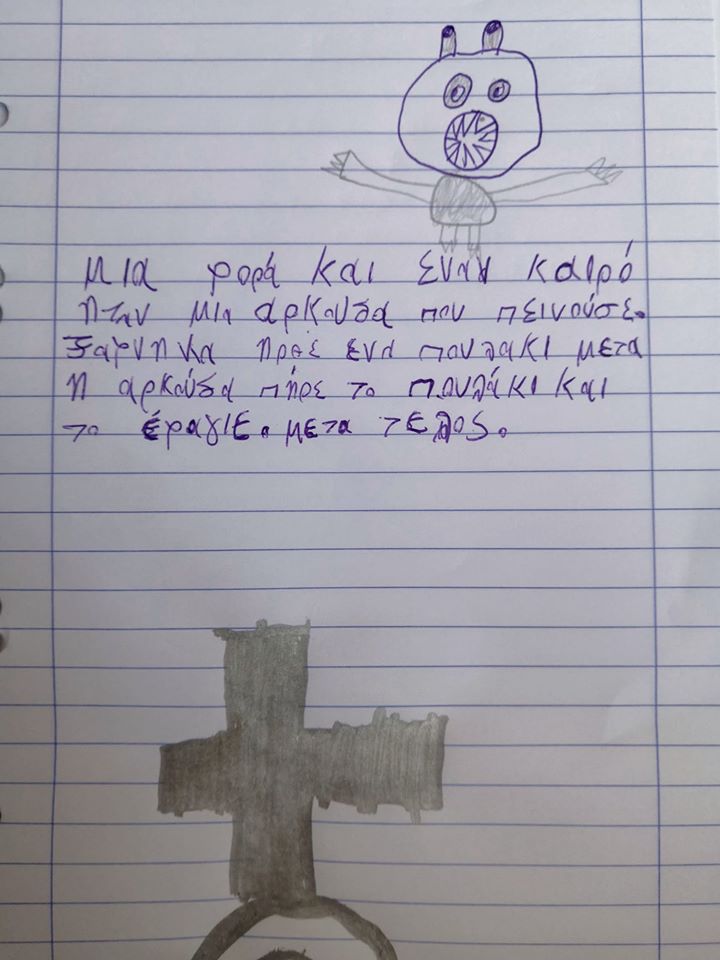 μια φορά και έναν καιρό
ηταν μια αρκουδα που πεινούσε.
Ξαφνηκα ηρθε ενα πουλακι μετα
η αρκούδα πήρε το πουλάκι και
το έφαγιε. μετα τελος.